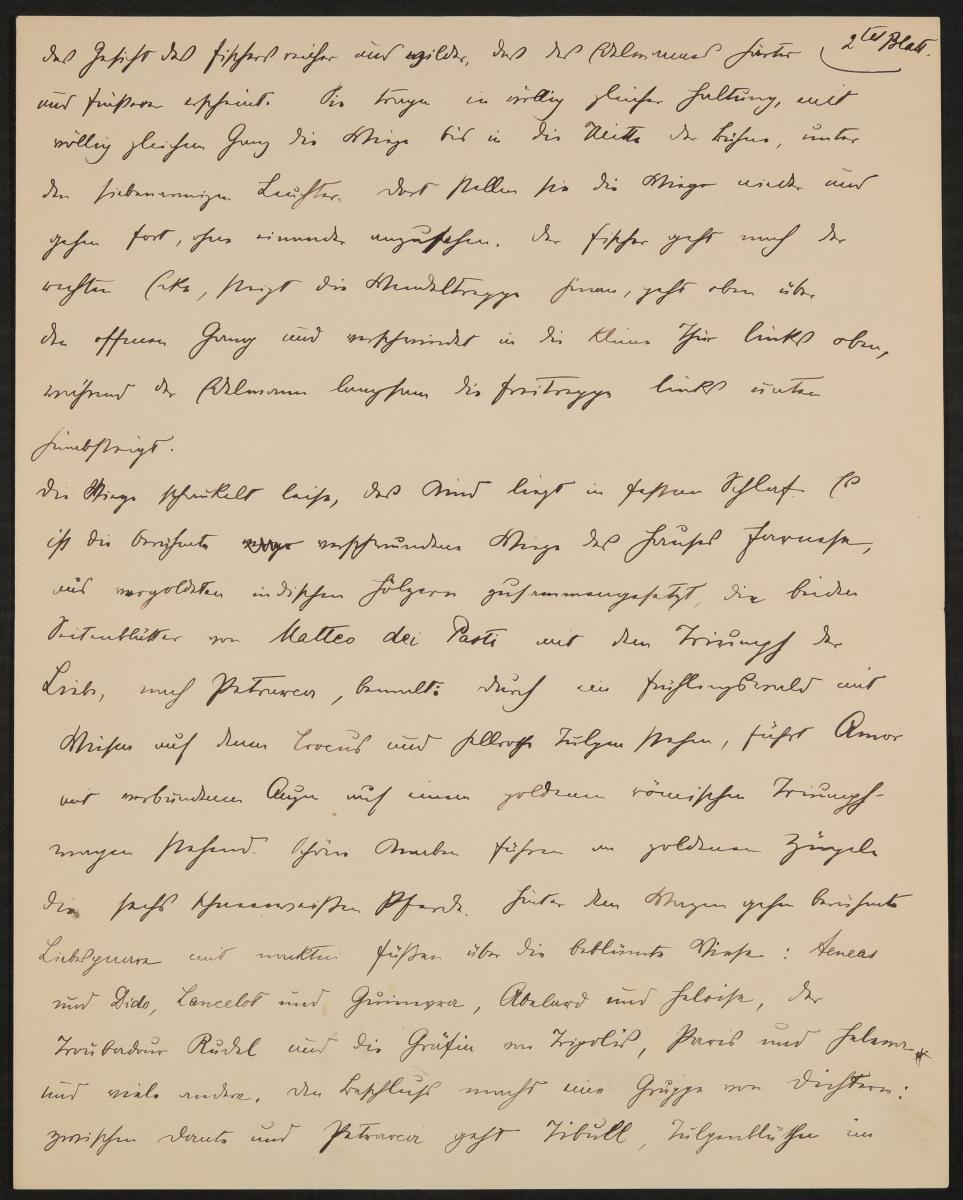 2ter Blatt.
das Gesicht des Fischers weicher und wilder, das des Edelmannes härter
und finsterer erscheint. Sie tragen in völlig gleicher Haltung, mit
völlig gleichem Gang die Wiege bis in die Mitte der Bühne, unter
den siebenarmigen Leuchter. Dort stellen sie die Wiege nieder und
gehen fort, ohne einander anzusehen. Der Fischer geht nach der
rechten Ecke, steigt die Wendeltreppe hinan, geht oben über
den offenen Gang und verschwindet in die kleine Thür links oben,
während der Edelmann langsam die Freitreppe links unten
hinabsteigt.
Die Wiege schaukelt leise, das Kind liegt in festem Schlaf. Es
ist die berühmte verschwundene Wiege des Hauses Farnese,
aus vergoldeten indischen Hölzern zusammengesetzt, die beiden
Seitenblätter von Matteo dei Pasti mit dem Triumph der
Liebe, nach Petrarca, bemalt: durch ein Frühlingswald mit
Wiesen auf denen Crocus und hellrothe Tulpen stehen, fährt Amor
mit verbundenen Augen auf einem goldenen römischen Triumph-
wagen stehend. Schöne Knaben führen an goldenen Zügeln
die sechs schneeweißen Pferde. Hinter dem Wagen gehen berühmte
Liebespaare mit nackten Füßen über die beblümte Wiese: Aeneas
und Dido, Lancelot und Guinevra, Abelard und Heloise, der
Troubadour Rudel und die Gräfin von Tripolis, Paris und Helena
und viele andere. Den Beschluß macht eine Gruppe von Dichtern:
zwischen Dante und Petrarca geht Tibull, Tulpenblüthen im